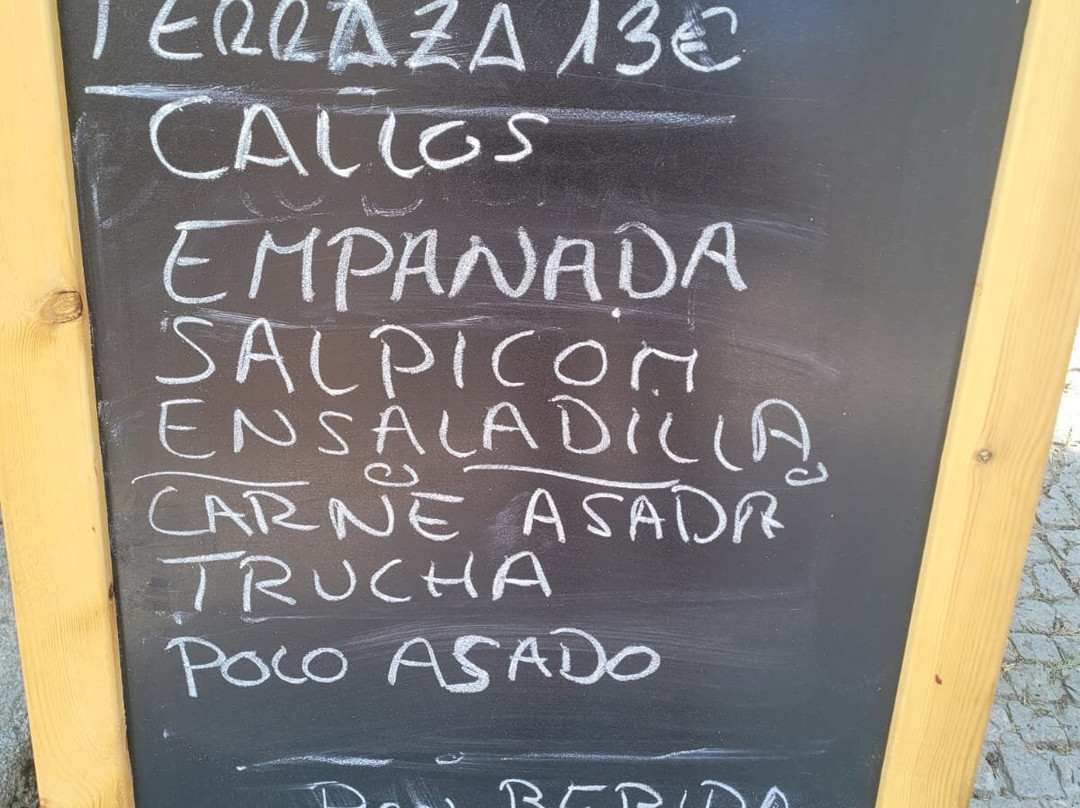 TERRAZA 13€
CALLOS
EMPANADA
SALPICOM
ENSALADILLA
CARNE ASADA
TRUCHA
POLO ASADO
PAN BEBIDA